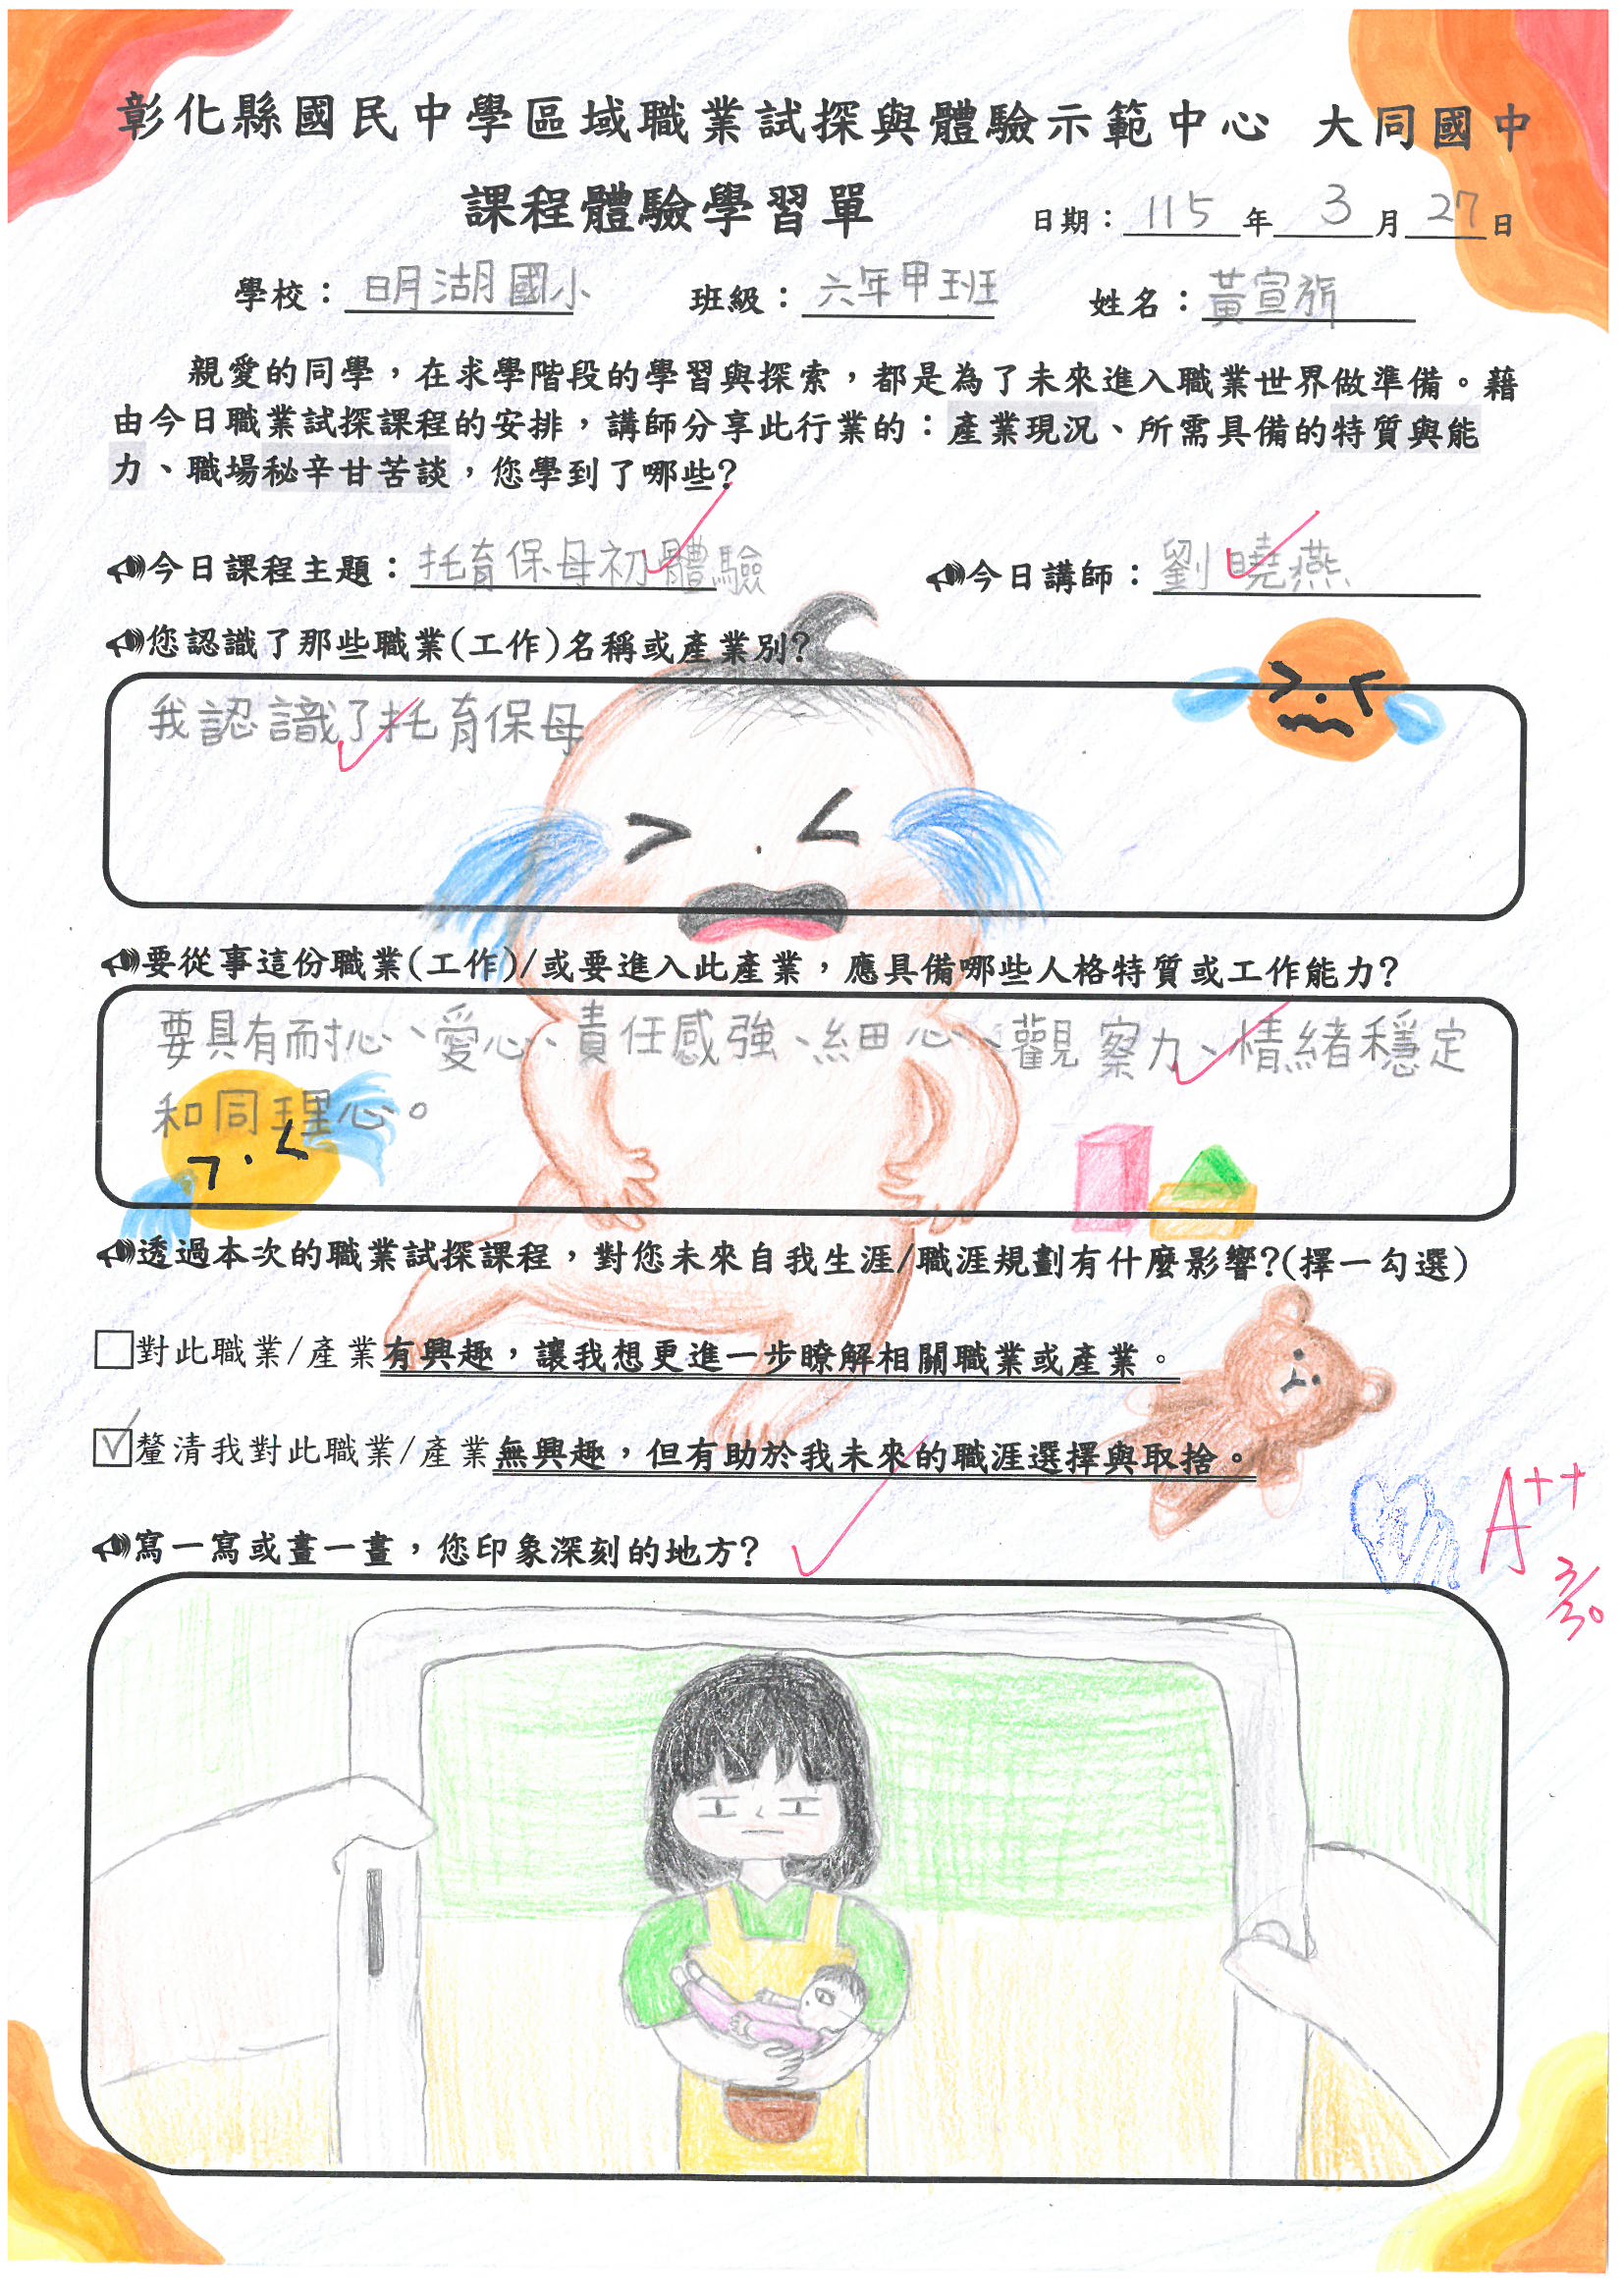 彰化縣國民中學區域職業試探與體驗示範中心 大同國中
課程體驗學習單 日期：115年3月27日
學校：明湖國小 班級：六年甲班 姓名：黃宣旂
親愛的同學，在求學階段的學習與探索，都是為了未來進入職業世界做準備。藉
由今日職業試探課程的安排，講師分享此行業的：產業現況、所需具備的特質與能
力、職場秘辛甘苦談，您學到了哪些?
今日課程主題：托育保母初體驗 今日講師：劉曉燕
您認識了那些職業(工作)名稱或產業別?
我認識了托育保母
要從事這份職業(工作)/或要進入此產業，應具備哪些人格特質或工作能力?
要具有耐心、愛心、責任感強、細心、觀察力、情緒穩定
和同理心。
透過本次的職業試探課程，對您未來自我生涯/職涯規劃有什麼影響?(擇一勾選)
對此職業/產業有興趣，讓我想更進一步瞭解相關職業或產業。
釐清我對此職業/產業無興趣，但有助於我未來的職涯選擇與取捨。
寫一寫或畫一畫，您印象深刻的地方?
A++
3/30